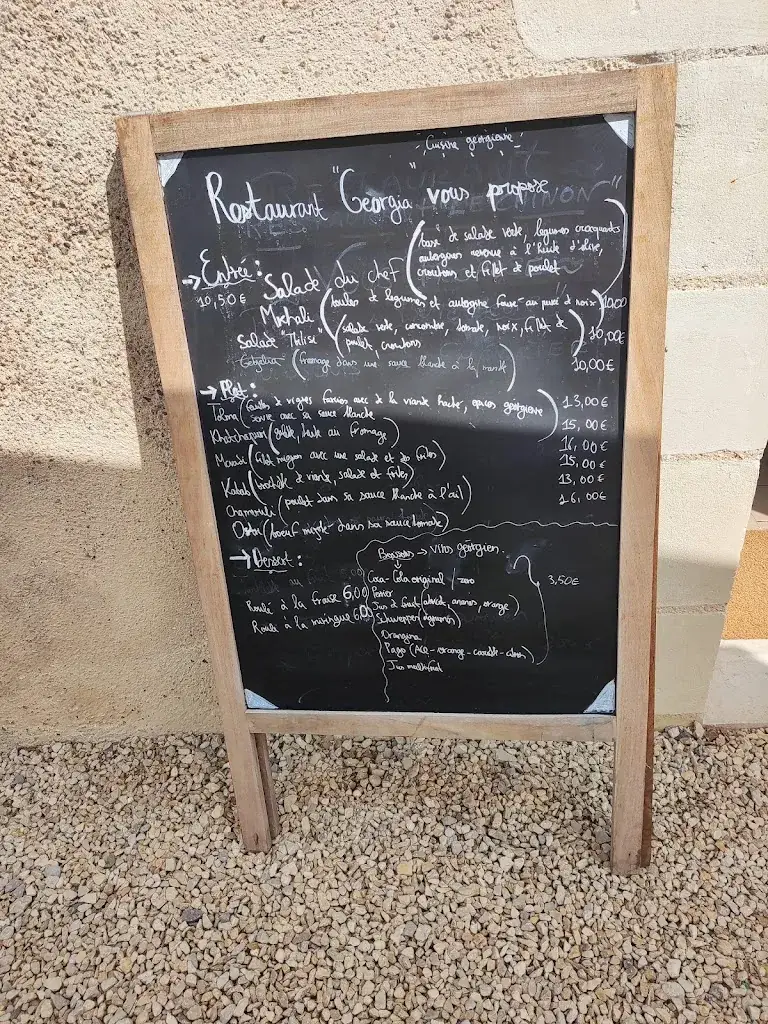 Cuisine géorgienne
Restaurant "Georgia" vous propose
→ Entrée:
10,50€ Salade du chef (base de salade verte, legumes croequants
aubergines revenue à l'huile d'olive,
croutons et fillet de poulet
Mkhali (boules de legumes et aubergine farcie au purée de noix) 10,00
Salade "Tbilisi" (salade verte, concombre, tomate, noix, fillet de
poulet, croutons) 10,00€
(fromage dans une sauce blanche à la menthe) 10,00€
→ Plat:
Tolma (feuilles de vignes farcies avec de la viande haché, epices géorgienne
servie avec sa sauce blanche) 13,00€
Khatchapuri (galette, cuite au fromage) 15,00€
(filet mignon avec une salade et des frites) 16,00€
Kabab (brochette de viande, salade et frites) 15,00€
(poulet dans sa sauce blanche à l'ail) 13,00€
Ostri (boeuf mijoté dans sa sauce tomate) 16,00€
→ Dessert:
Roulé à la fraise 6,00
Roulé à la meringue 6,00
Boissons → vins géorgien.
Coca-Cola original / zero 3,50€
Perier
Jus de fruit (abricot, ananas, orange)
Schweppes (agrumes)
Orangina
Pago (ACE - orange - carotte - citron)
Jus multifruit